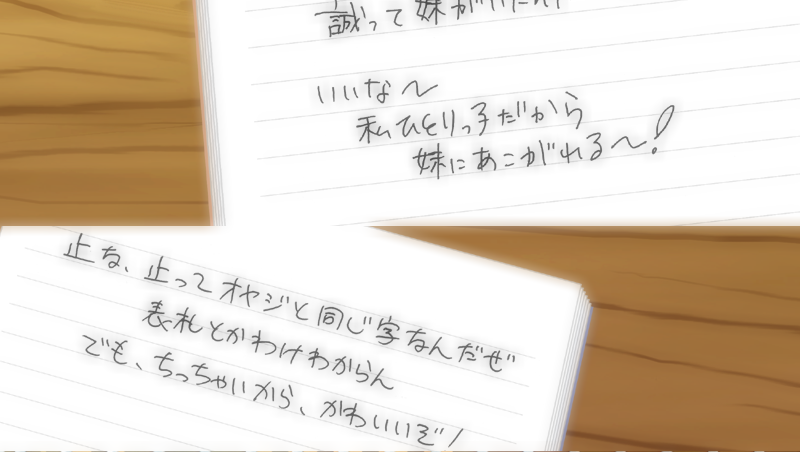 誠って妹がいたん
いいな〜
私ひとりっ子だから
妹にあこがれる〜!
止な、止ってオヤジと同じ字なんだぜ
表札とかわけわからん
でも、ちっちゃいから、かわいいぞ!